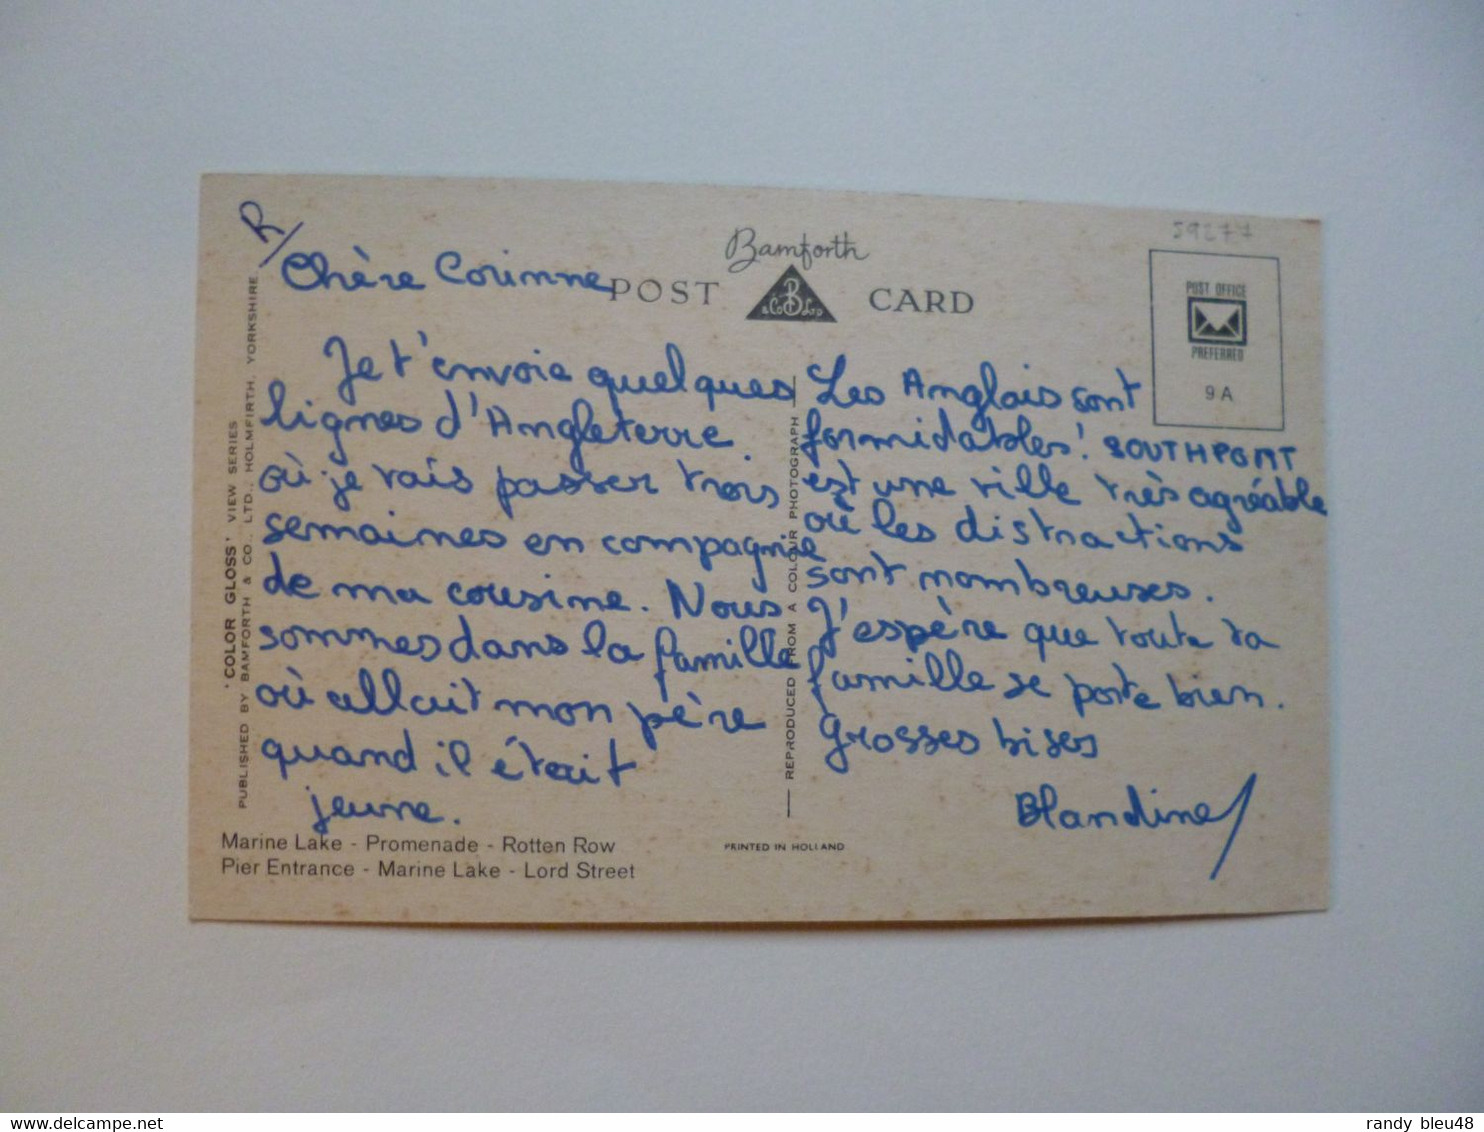 R/
Chère Corinne
Je t'envoie quelques
lignes d'Angleterre.
où je vais passer trois
semaines en compagnie
de ma cousine. Nous
sommes dans la famille
où allait mon père
quand il était
jeune.
Les Anglais sont
formidables! SOUTHPORT
est une ville très agréable
où les distractions
sont nombreuses.
J'espère que toute ta
famille se porte bien.
Grosses bises
Blandine
Bamforth
POST CARD
& Co B Ltd
59277
POST OFFICE
PREFERRED
9A
'COLOR GLOSS' VIEW SERIES
PUBLISHED BY BAMFORTH & CO., LTD., HOLMFIRTH, YORKSHIRE.
REPRODUCED FROM A COLOUR PHOTOGRAPH
Marine Lake - Promenade - Rotten Row
Pier Entrance - Marine Lake - Lord Street
PRINTED IN HOLLAND
delcampe.net
randy_bleu48